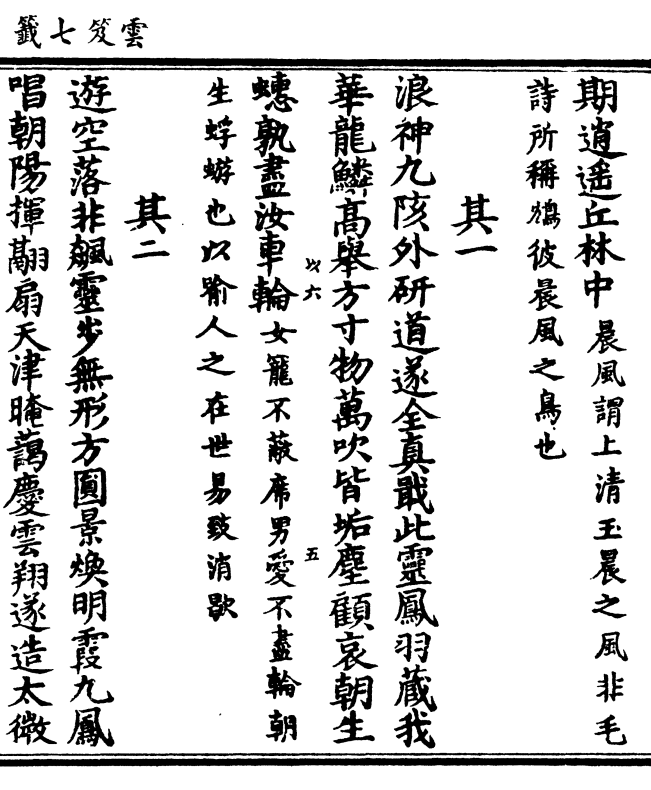 雲笈七籤
期逍遥丘林中晨風謂上清玉晨之風非毛
詩所稱鴥彼晨風之鳥也
其一
浪神九陔外研道遂全真戢此靈鳳羽蔵我
華龍鱗高舉方寸物萬吹皆垢塵顧哀朝生
蟪孰盡汝車輪女寵不蔽席男愛不盡輪朝
以六
五
生蜉蝣也以喻人之在世易致消歇
其二
遊空落非飊靈步無形方圓景煥明霞九鳳
唱朝陽揮翮扇天津晻藹慶雲翔遂造太微